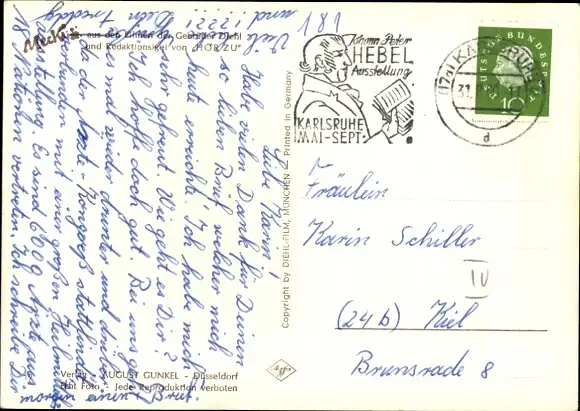 Mecki
aus den Filmen der Gebrüder Diehl
und Redaktionsigel von "HÖR ZU"
181
Johann Peter
HEBEL
Ausstellung
KARLSRUHE
MAI-SEPT.
(17a) KARLSRUHE
31.
d
DEUTSCHE BUNDESPOST
10
Liebe Karin!
Habe vielen Dank für Deinen
lieben Brief, welcher mich
heute erreichte. Ich habe mich
sehr gefreut. Wie geht es Dir?
Ich hoffe doch gut. Bei uns geht
es wieder drunter und drüber,
da der Ärzte-Kongreß stattfindet,
verbunden mit einer großen Heilmittel
Ausstellung. Es sind 6000 Ärzte aus
18 Nationen vertreten. Ich schreibe Dir
morgen einen Brief!
Viel
und
Dein Freddy
Copyright by DIEHL-FILM, MÜNCHEN — Printed in Germany
Fräulein
Karin Schiller
IV
(24b) Kiel
Brunsrade 8
Agfa
Verlag - AUGUST GUNKEL - Düsseldorf
Echt Foto - Jede Reproduktion verboten